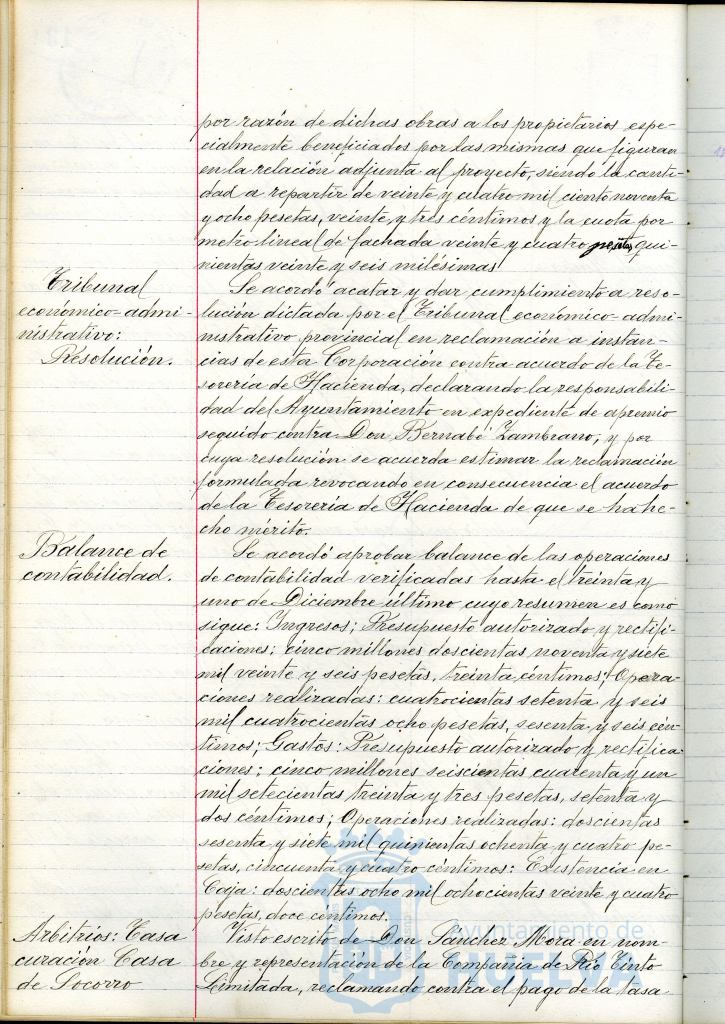 por razón de dichas obras a los propietarios espe-
cialmente beneficiados por las mismas que figuran
en la relación adjunta al proyecto, siendo la canti-
dad a repartir de veinte y cuatro mil ciento noventa
y ocho pesetas, veinte y tres céntimos y la cuota por
metro lineal de fachada veinte y cuatro pesetas qui-
nientas veinte y seis milésimas
Tribunal
económico-admi-
nistrativo:
Resolución.
Se acordó acatar y dar cumplimiento a reso-
lución dictada por el Tribunal económico-admi-
nistrativo provincial en reclamación a instan-
cias de esta Corporación contra acuerdo de la Te-
sorería de Hacienda, declarando la responsabili-
dad del Ayuntamiento en expediente de apremio
seguido contra Don Bernabé Zambrano, y por
cuya resolución se acuerda estimar la reclamación
formulada revocando en consecuencia el acuerdo
de la Tesorería de Hacienda de que se ha he-
cho mérito.
Balance de
contabilidad.
Se acordó aprobar balance de las operaciones
de contabilidad verificadas hasta el treinta y
uno de Diciembre último cuyo resumen es como
sigue: Ingresos; Presupuesto autorizado y rectifi-
caciones: cinco millones doscientas noventa y siete
mil veinte y seis pesetas, treinta céntimos; Opera-
ciones realizadas: cuatrocientas setenta y seis
mil cuatrocientas ocho pesetas, sesenta y seis cén-
timos; Gastos: Presupuesto autorizado y rectifica-
ciones; cinco millones seiscientas cuarenta y un
mil setecientas treinta y tres pesetas, setenta y
dos céntimos; Operaciones realizadas: doscientas
sesenta y siete mil quinientas ochenta y cuatro pe-
setas, cincuenta y cuatro céntimos: Existencia en
Caja: doscientas ocho mil ochocientas veinte y cuatro
pesetas, doce céntimos.
Arbitrios: Tasa
curación Casa
de Socorro
Visto escrito de Don Sánchez Mora en nom-
bre y representación de la Compañía de Río Tinto
Limitada, reclamando contra el pago de la tasa
Ayuntamiento de
HUELVA